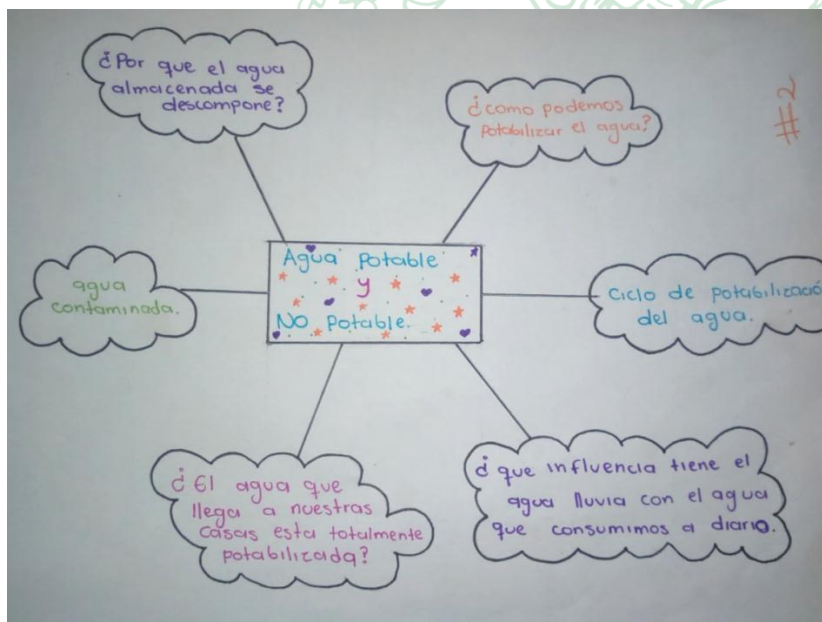 ¿Por que el agua
almacenada se
descompone?
¿como podemos
potabilizar el agua?
#2
Agua Potable
y
No Potable.
agua
contaminada.
Ciclo de potabilizació
del agua.
¿El agua que
llega a nuestras
casas esta totalmente
potabilizada?
¿que influencia tiene el
agua lluvia con el agua
que consumimos a diario.